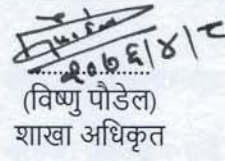 २०७६/४/८
(विष्णु पौडेल)
शाखा अधिकृत